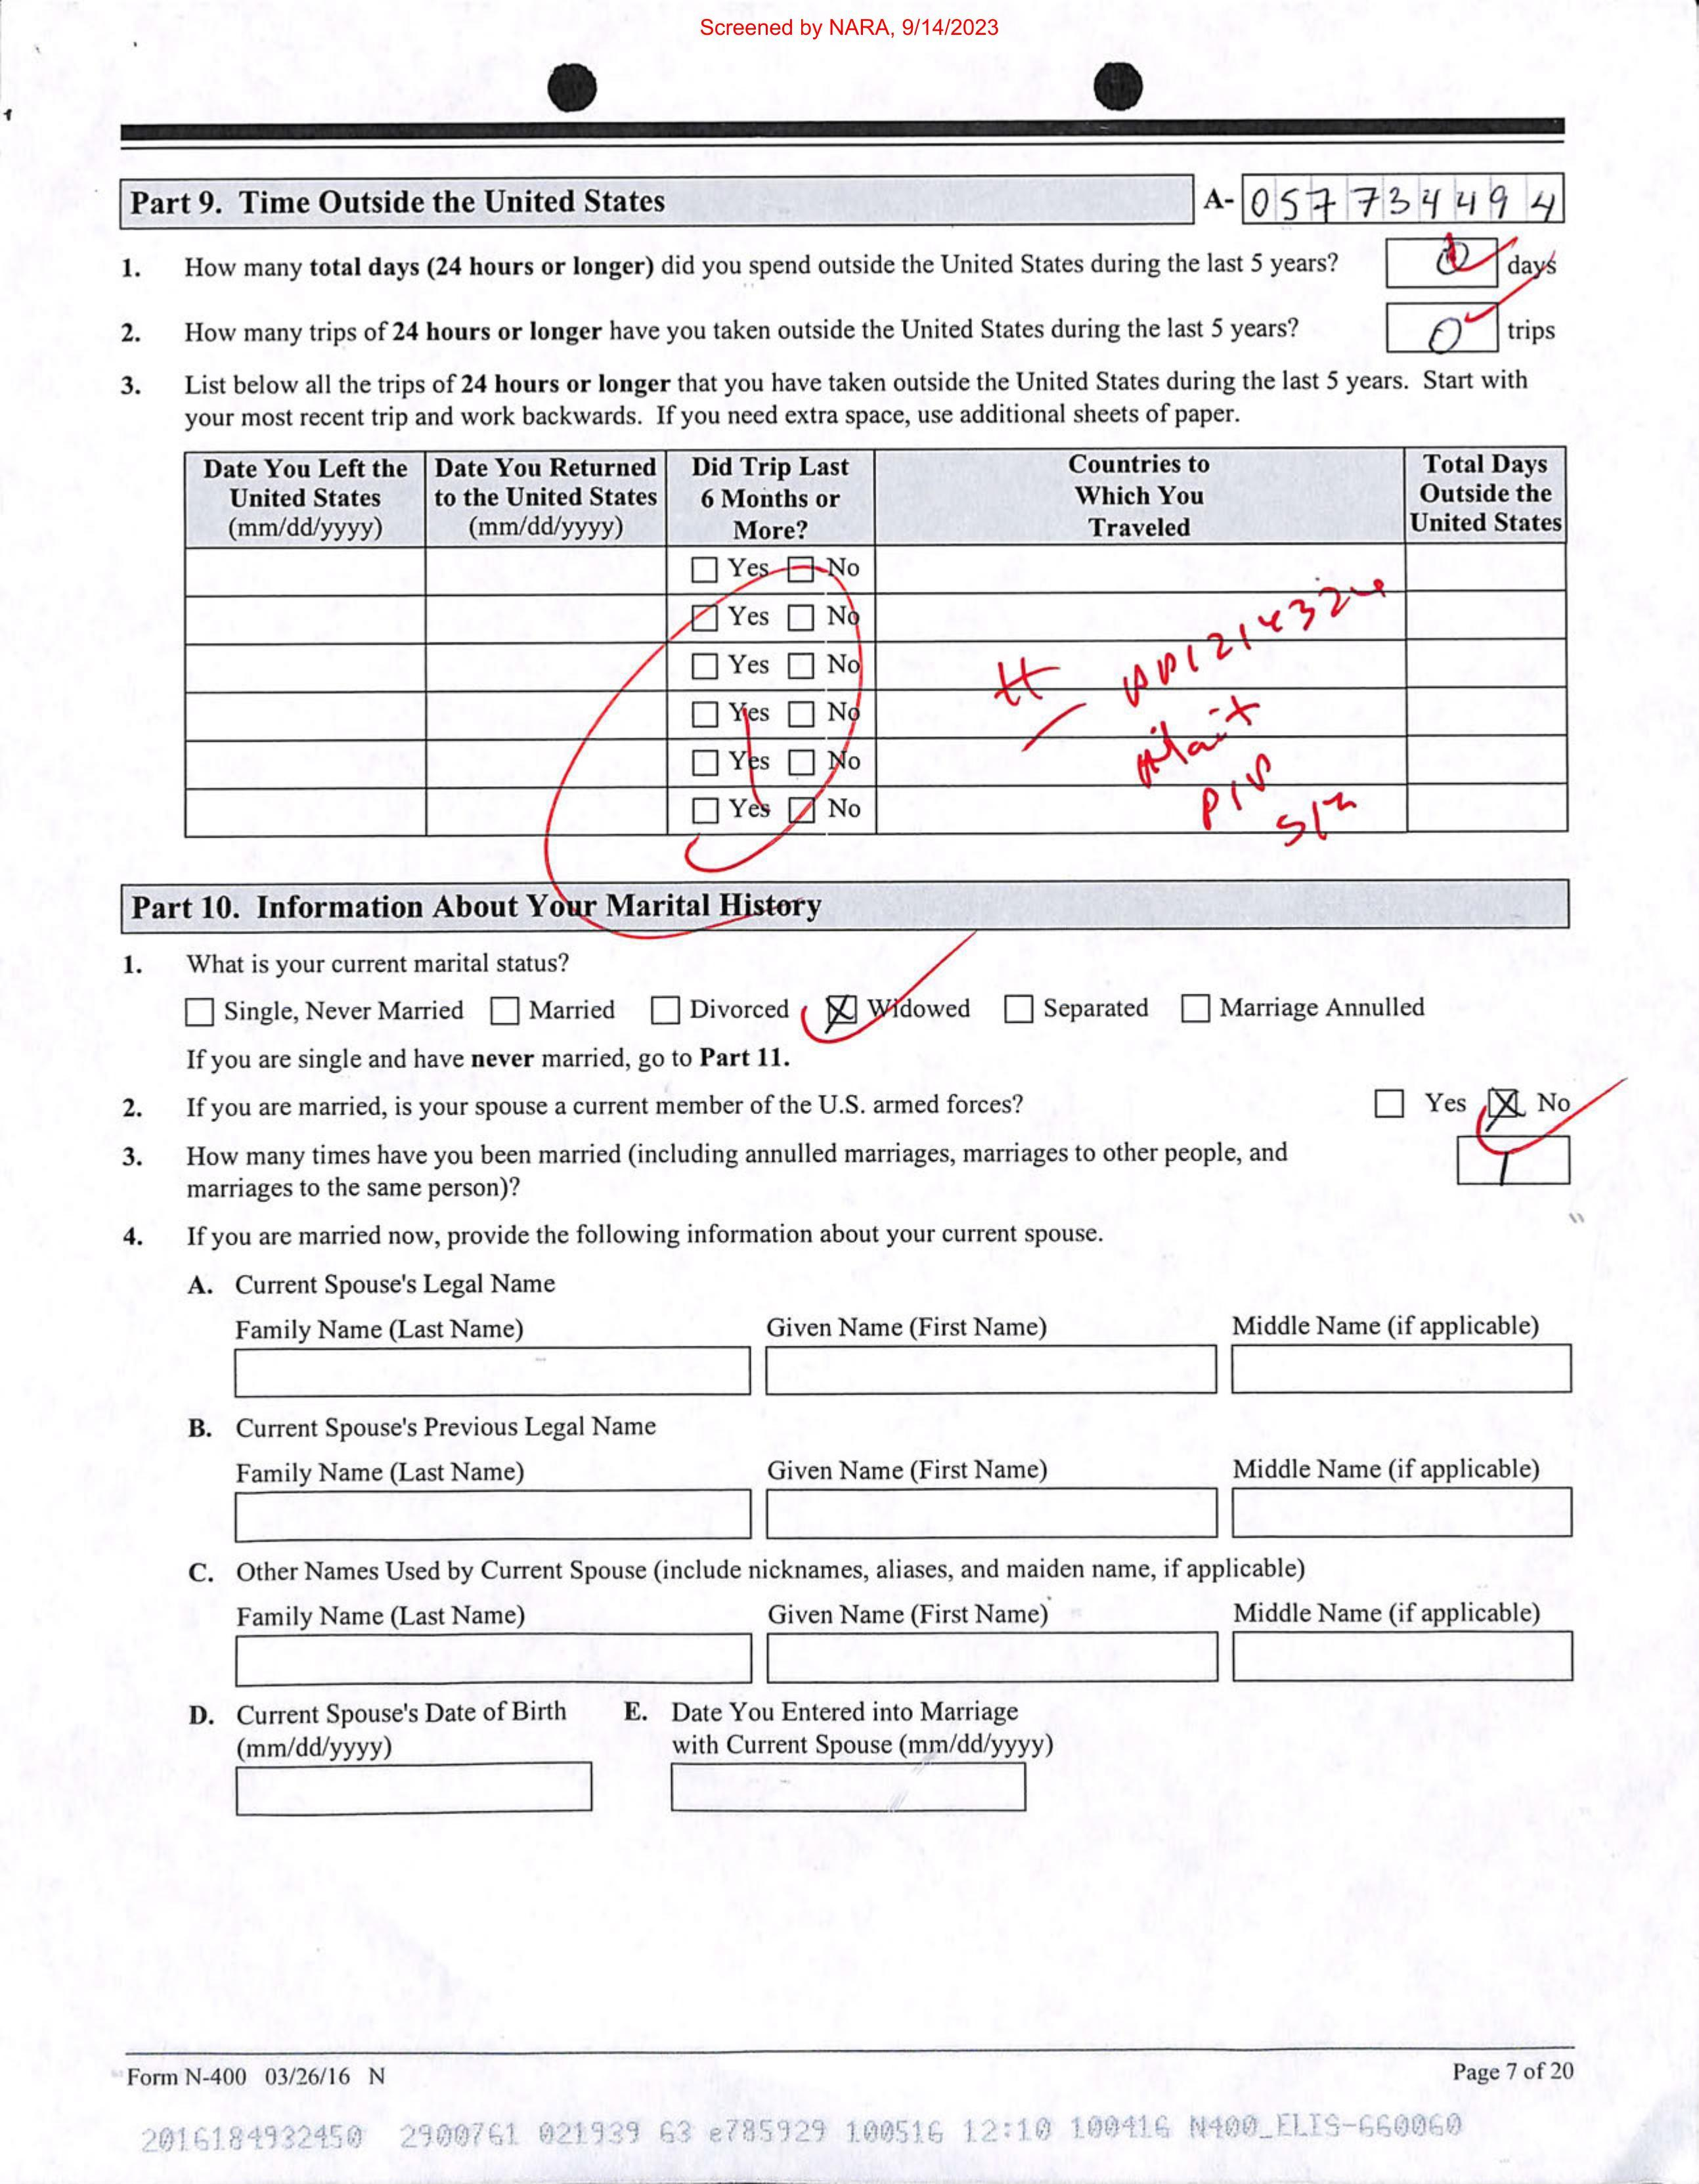 Screened by NARA, 9/14/2023
Part 9. Time Outside the United States
A- 057734494
1. How many total days (24 hours or longer) did you spend outside the United States during the last 5 years? 0 days
2. How many trips of 24 hours or longer have you taken outside the United States during the last 5 years? 0 trips
3. List below all the trips of 24 hours or longer that you have taken outside the United States during the last 5 years. Start with
your most recent trip and work backwards. If you need extra space, use additional sheets of paper.
Date You Left the Date You Returned Did Trip Last Countries to Total Days
United States to the United States 6 Months or Which You Outside the
(mm/dd/yyyy) (mm/dd/yyyy) More? Traveled United States
Yes No
Yes No
Yes No
Yes No
Yes No
Yes No
Part 10. Information About Your Marital History
1. What is your current marital status?
Single, Never Married Married Divorced X Widowed Separated Marriage Annulled
If you are single and have never married, go to Part 11.
2. If you are married, is your spouse a current member of the U.S. armed forces? Yes X No
3. How many times have you been married (including annulled marriages, marriages to other people, and 1
marriages to the same person)?
4. If you are married now, provide the following information about your current spouse.
A. Current Spouse's Legal Name
Family Name (Last Name) Given Name (First Name) Middle Name (if applicable)
B. Current Spouse's Previous Legal Name
Family Name (Last Name) Given Name (First Name) Middle Name (if applicable)
C. Other Names Used by Current Spouse (include nicknames, aliases, and maiden name, if applicable)
Family Name (Last Name) Given Name (First Name) Middle Name (if applicable)
D. Current Spouse's Date of Birth E. Date You Entered into Marriage
(mm/dd/yyyy) with Current Spouse (mm/dd/yyyy)
Form N-400 03/26/16 N Page 7 of 20
2016184932450 2900761 021939 63 e785929 100516 12:10 100416 N400_ELIS-660060